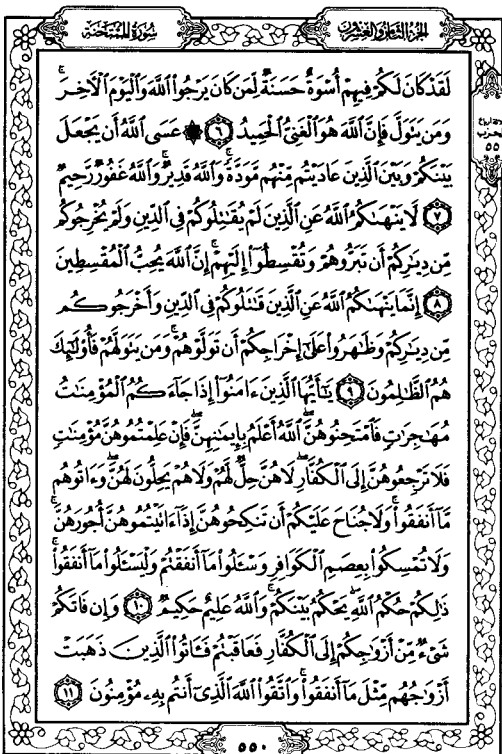 سُورَةُ المُمْتَحنَة
الجُزءُ الثَّامِنُ وَالعِشْرُونَ
لَقَدْ كَانَ لَكُمْ فِيهِمْ أُسْوَةٌ حَسَنَةٌ لِّمَن كَانَ يَرْجُوا۟ ٱللَّهَ وَٱلْيَوْمَ ٱلْـَٔاخِرَ ۚ
وَمَن يَتَوَلَّ فَإِنَّ ٱللَّهَ هُوَ ٱلْغَنِىُّ ٱلْحَمِيدُ ٦ ۞ عَسَى ٱللَّهُ أَن يَجْعَلَ
بَيْنَكُمْ وَبَيْنَ ٱلَّذِينَ عَادَيْتُم مِّنْهُم مَّوَدَّةً ۚ وَٱللَّهُ قَدِيرٌ ۚ وَٱللَّهُ غَفُورٌ رَّحِيمٌ
٧ لَّا يَنْهَىٰكُمُ ٱللَّهُ عَنِ ٱلَّذِينَ لَمْ يُقَـٰتِلُوكُمْ فِى ٱلدِّينِ وَلَمْ يُخْرِجُوكُم
مِّن دِيَـٰرِكُمْ أَن تَبَرُّوهُمْ وَتُقْسِطُوٓا۟ إِلَيْهِمْ ۚ إِنَّ ٱللَّهَ يُحِبُّ ٱلْمُقْسِطِينَ
٨ إِنَّمَا يَنْهَىٰكُمُ ٱللَّهُ عَنِ ٱلَّذِينَ قَـٰتَلُوكُمْ فِى ٱلدِّينِ وَأَخْرَجُوكُم
مِّن دِيَـٰرِكُمْ وَظَـٰهَرُوا۟ عَلَىٰٓ إِخْرَاجِكُمْ أَن تَوَلَّوْهُمْ ۚ وَمَن يَتَوَلَّهُمْ فَأُو۟لَـٰٓئِكَ
هُمُ ٱلظَّـٰلِمُونَ ٩ يَـٰٓأَيُّهَا ٱلَّذِينَ ءَامَنُوٓا۟ إِذَا جَآءَكُمُ ٱلْمُؤْمِنَـٰتُ
مُهَـٰجِرَٰتٍ فَٱمْتَحِنُوهُنَّ ۖ ٱللَّهُ أَعْلَمُ بِإِيمَـٰنِهِنَّ ۖ فَإِنْ عَلِمْتُمُوهُنَّ مُؤْمِنَـٰتٍ
فَلَا تَرْجِعُوهُنَّ إِلَى ٱلْكُفَّارِ ۖ لَا هُنَّ حِلٌّ لَّهُمْ وَلَا هُمْ يَحِلُّونَ لَهُنَّ ۖ وَءَاتُوهُم
مَّآ أَنفَقُوا۟ ۚ وَلَا جُنَاحَ عَلَيْكُمْ أَن تَنكِحُوهُنَّ إِذَآ ءَاتَيْتُمُوهُنَّ أُجُورَهُنَّ ۚ
وَلَا تُمْسِكُوا۟ بِعِصَمِ ٱلْكَوَافِرِ وَسْـَٔلُوا۟ مَآ أَنفَقْتُمْ وَلْيَسْـَٔلُوا۟ مَآ أَنفَقُوا۟ ۚ
ذَٰلِكُمْ حُكْمُ ٱللَّهِ ۖ يَحْكُمُ بَيْنَكُمْ ۚ وَٱللَّهُ عَلِيمٌ حَكِيمٌ ١٠ وَإِن فَاتَكُمْ
شَىْءٌ مِّنْ أَزْوَٰجِكُمْ إِلَى ٱلْكُفَّارِ فَعَاقَبْتُمْ فَـَٔاتُوا۟ ٱلَّذِينَ ذَهَبَتْ
أَزْوَٰجُهُم مِّثْلَ مَآ أَنفَقُوا۟ ۚ وَٱتَّقُوا۟ ٱللَّهَ ٱلَّذِىٓ أَنتُم بِهِۦ مُؤْمِنُونَ ١١
٥٥٠
٥٥